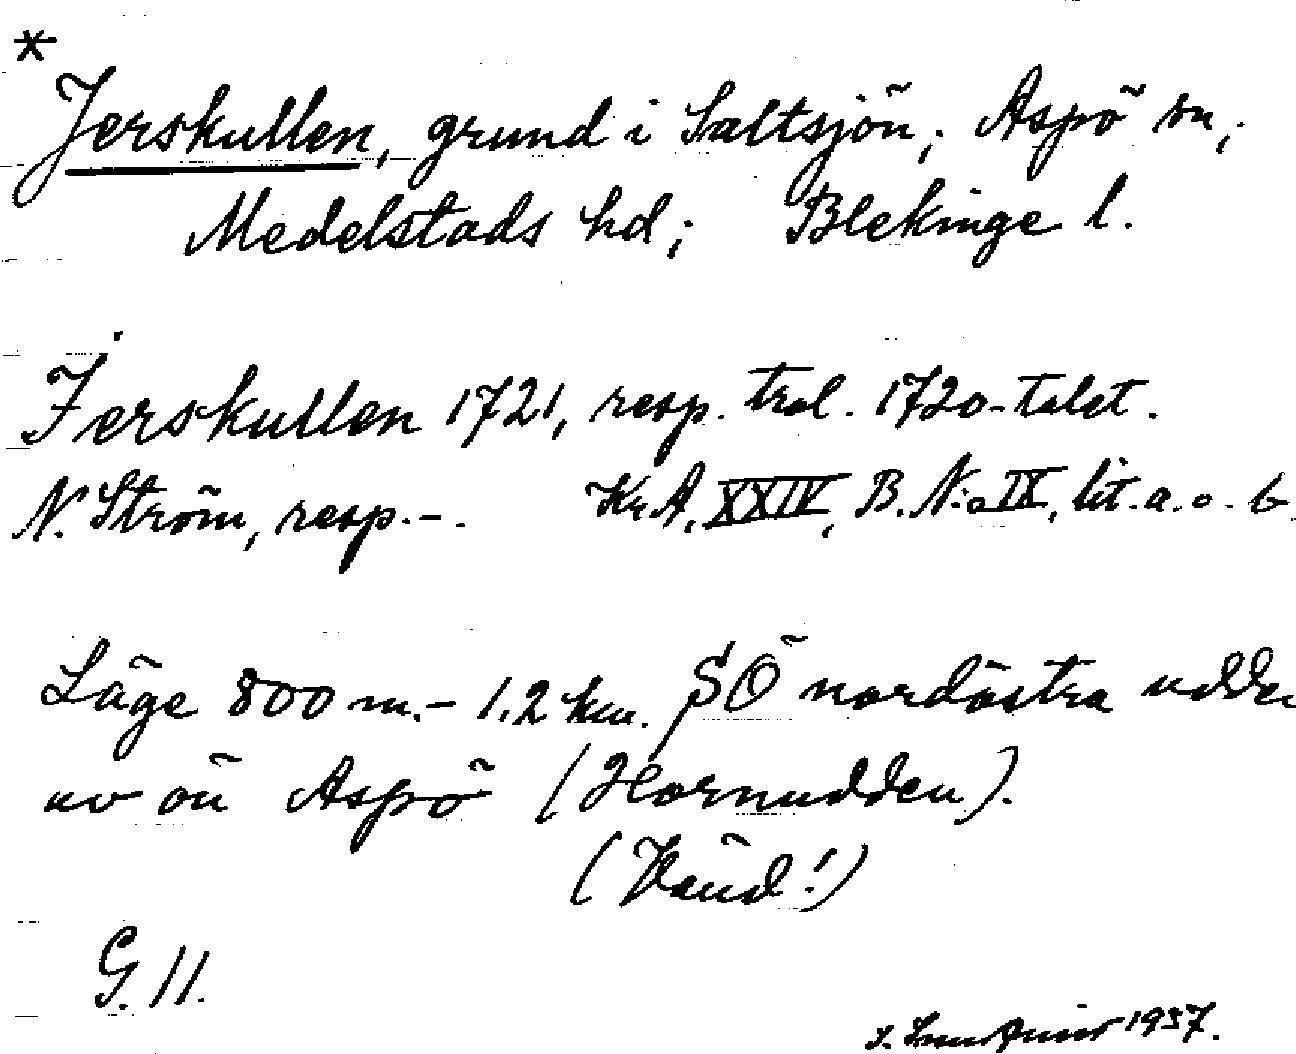 *
Jerskullen, grund i Saltsjön; Aspö sn;
Medelstads hd; Blekinge l.
Jerskullen 1721, resp. trol. 1720-talet.
N. Ström, resp. -. Kr.A. XXIV, B. N:o IX, lit. a. o. b
Läge 800 m. - 1,2 km. SÖ nordöstra udden
av ön Aspö (Hornudden).
(Vänd!)
G. 11.
1937.